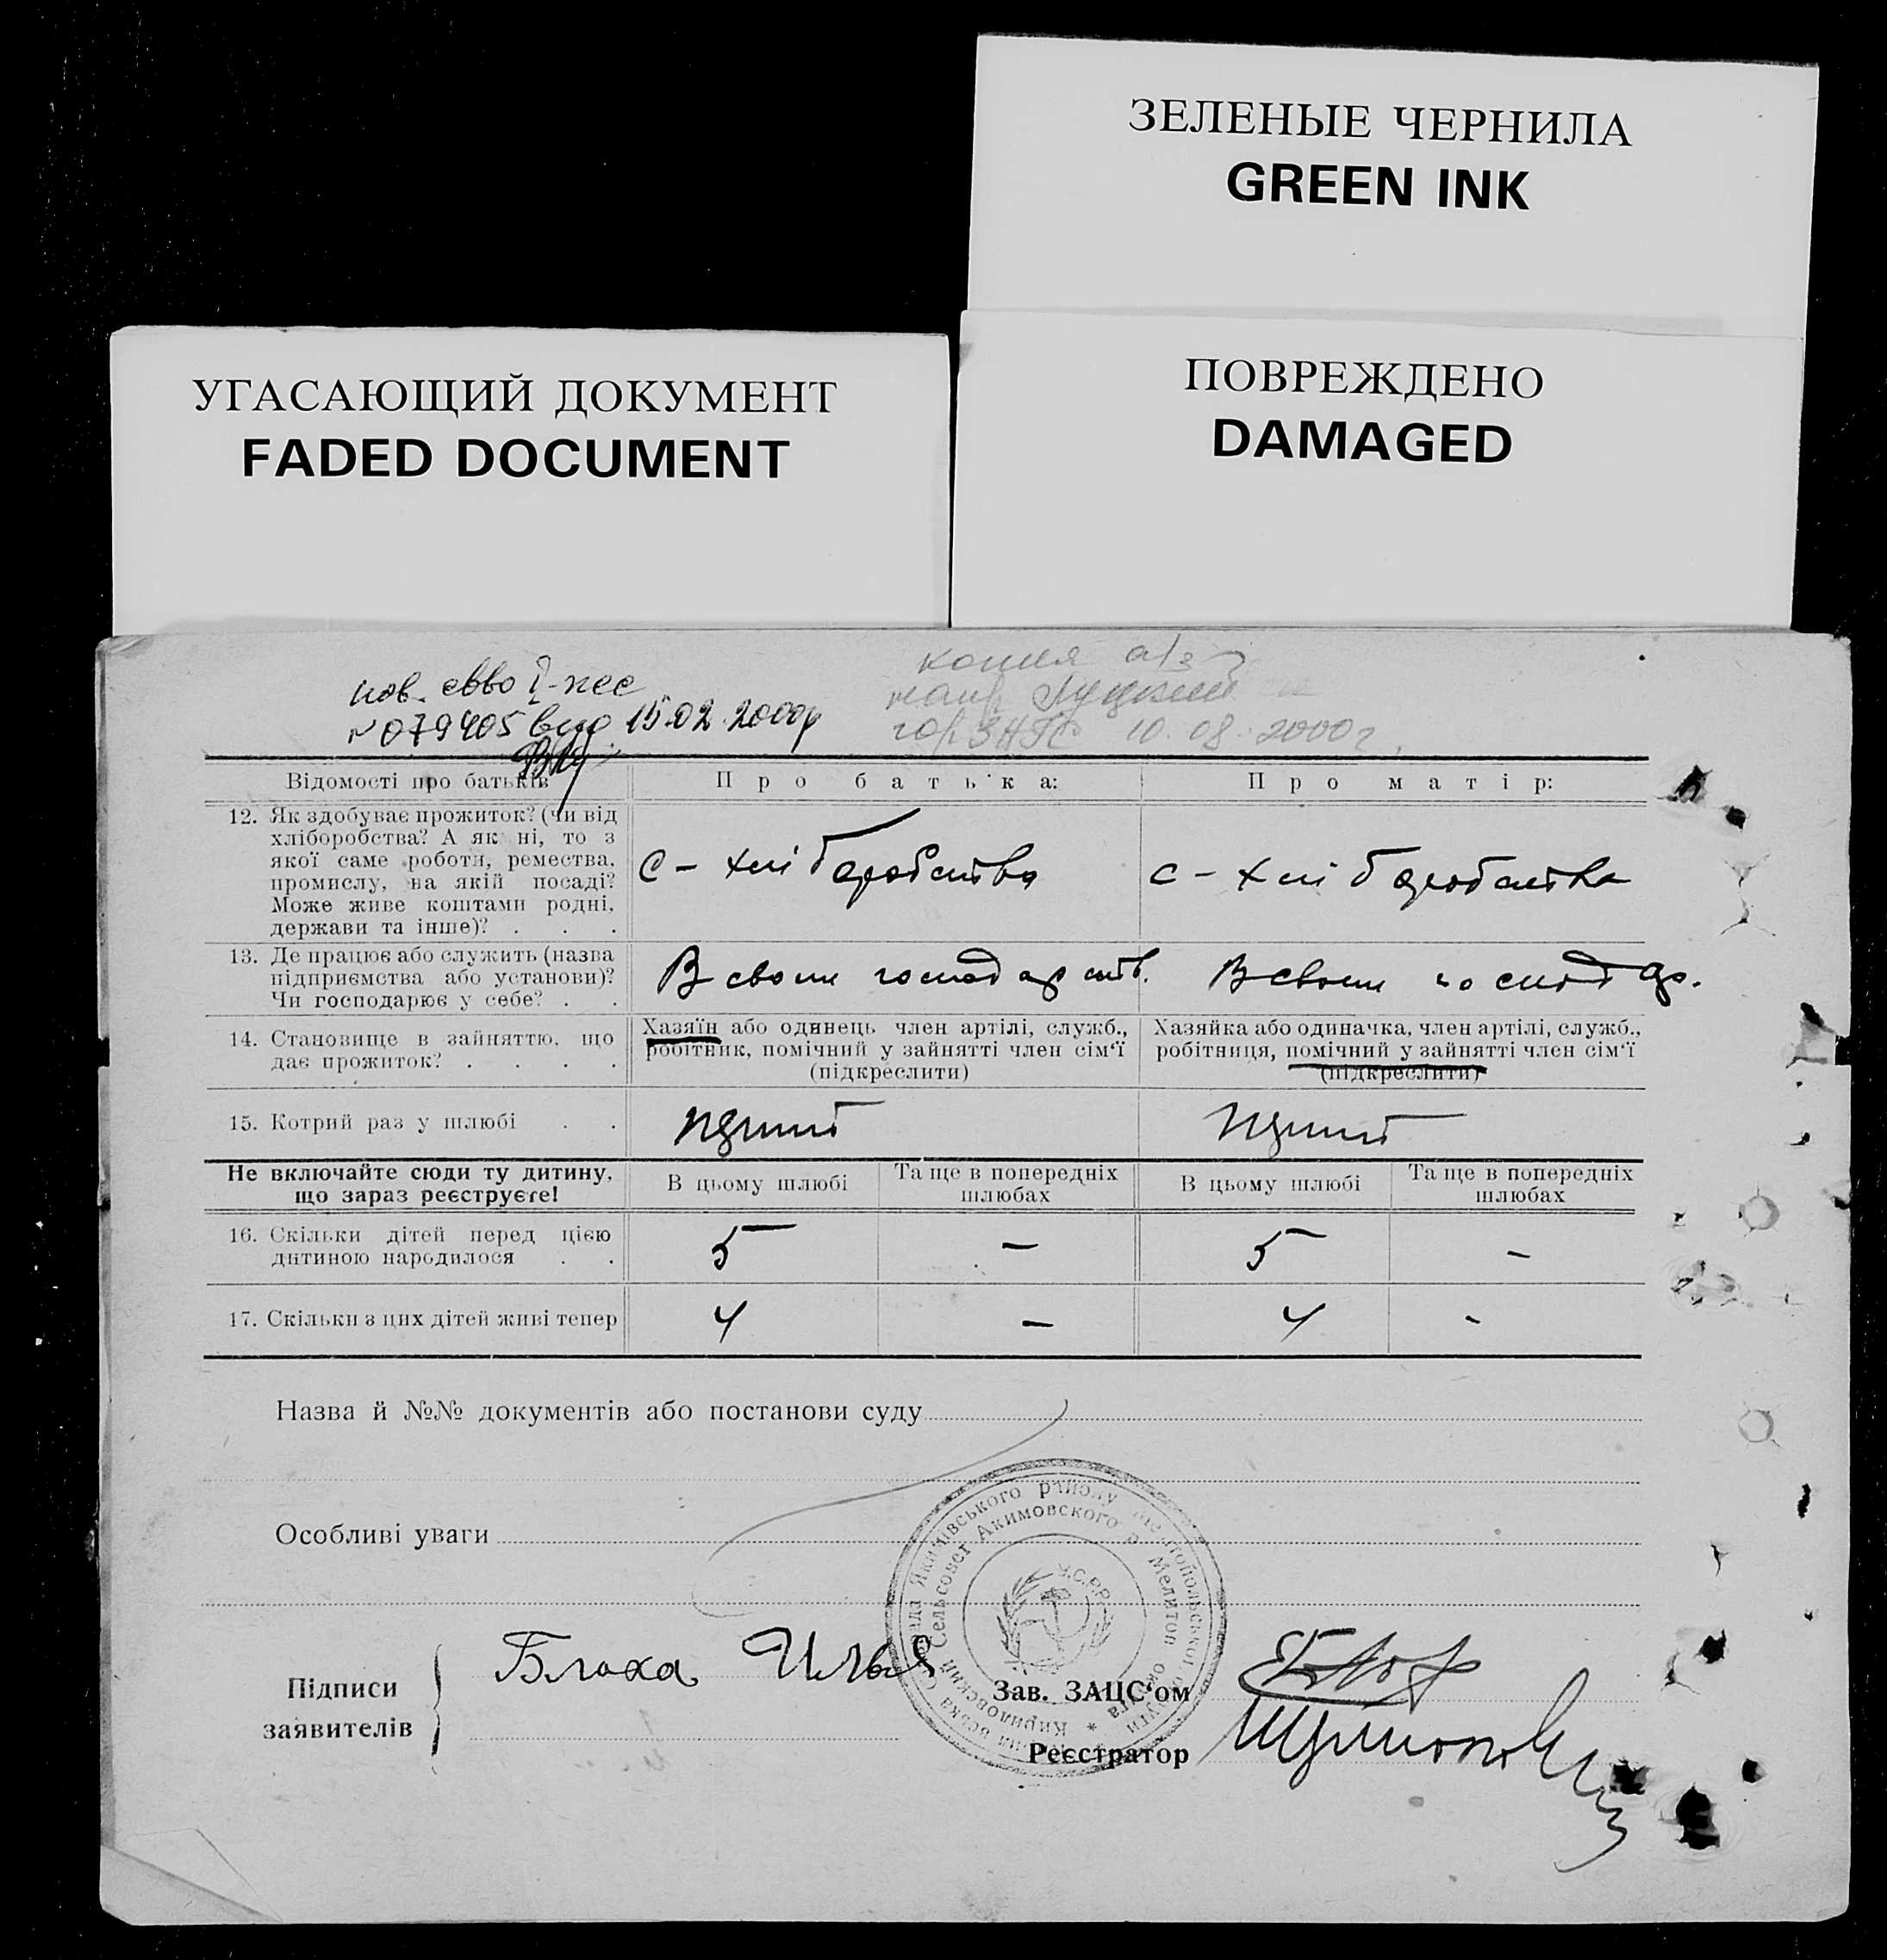 ЗЕЛЕНЫЕ ЧЕРНИЛА
GREEN INK
УГАСАЮЩИЙ ДОКУМЕНТ
FADED DOCUMENT
ПОВРЕЖДЕНО
DAMAGED
копия а/з
гор ЗАГС 10.08.2000г.
№ 079405 15.02.2000р
Відомості про батьків
Про батька:
Про матір:
12. Як здобуває прожиток? (чи від
хліборобства? А як ні, то з
якої саме роботи, ремества,
промислу, на якій посаді?
Може живе коштами родні,
держави та інше)? . . .
С - хліборобства
с - хліборобства
13. Де працює або служить (назва
підприємства або установи)?
Чи господарює у себе? . .
В своим господарств.
В своим господар.
14. Становище в зайняттю, що
дає прожиток? . . . .
Хазяїн або одинець член артілі, служб.,
робітник, помічний у зайнятті член сім‘ї
(підкреслити)
Хазяйка або одиначка, член артілі, служб.,
робітниця, помічний у зайнятті член сім‘ї
(підкреслити)
15. Котрий раз у шлюбі . .
Не включайте сюди ту дитину,
що зараз реєструєте!
В цьому шлюбі
Та ще в попередніх
шлюбах
В цьому шлюбі
Та ще в попередніх
шлюбах
16. Скільки дітей перед цією
дитиною народилося . .
5 - 5 -
17. Скільки з цих дітей живі тепер
4 - 4 -
Назва й №№ документів або постанови суду
Особливі уваги
Якимівського району Мелітопольської округи
Кириловский Сельсовет Акимовского р. Мелитоп округа *
У.С.Р.Р.
Підписи
заявителів
Блоха Илья
Зав. ЗАЦС‘ом
Реєстратор